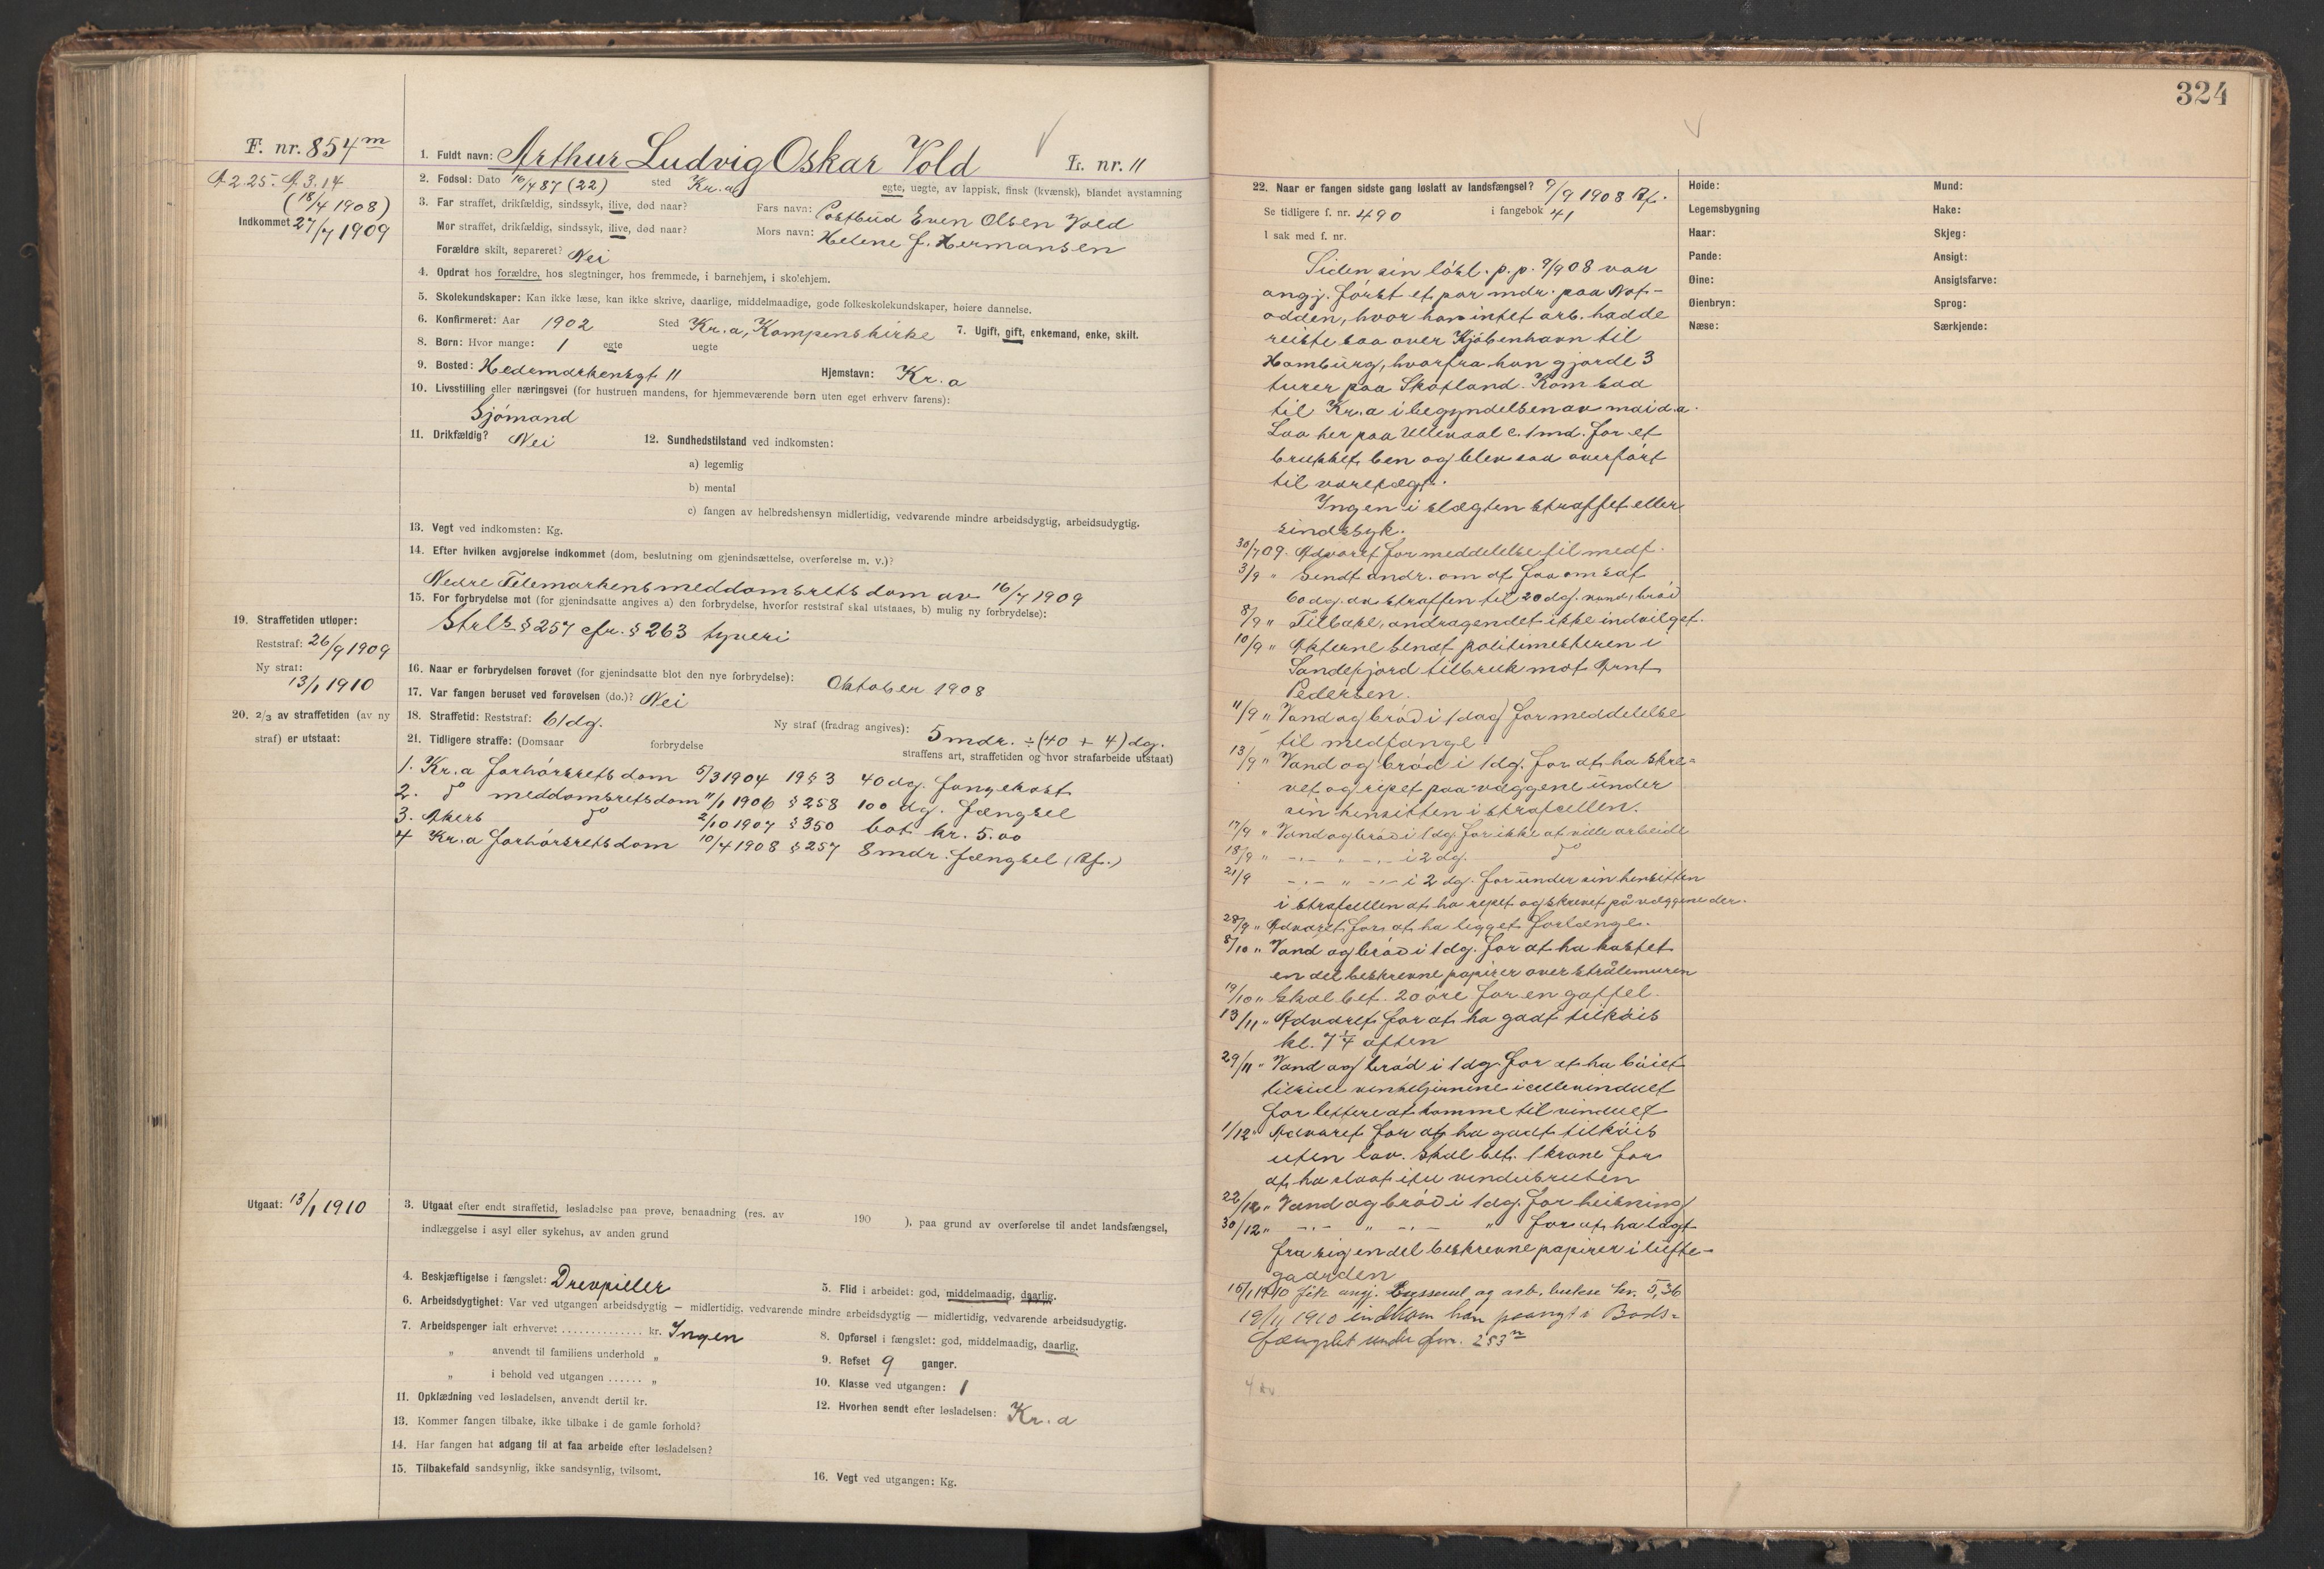 324
F. nr. 854 m
A 2.25. A 3.14
(18/4 1908)
Indkommet 27/7 1909
1. Fuldt navn: Arthur Ludvig Oskar Vold L. nr. 11
2. Fødsel: Dato 16/4 87 (22) sted Kr.a egte, uegte, av lappisk, finsk (kvænsk), blandet avstamning
3. Far straffet, drikfældig, sindssyk, ilive, død naar? Fars navn: Postbud Even Olsen Vold
Mor straffet, drikfældig, sindssyk, ilive, død naar? Mors navn: Helene f. Hermansen
Forældre skilt, separeret? Nei
4. Opdrat hos forældre, hos slegtninger, hos fremmede, i barnehjem, i skolehjem.
5. Skolekundskaper: Kan ikke læse, kan ikke skrive, daarlige, middelmaadige, gode folkeskolekundskaper, høiere dannelse.
6. Konfirmeret: Aar 1902 Sted Kr.a, Kampens kirke 7. Ugift, gift, enkemand, enke, skilt.
8. Børn: Hvor mange: 1 egte uegte
9. Bosted: Hedemarkensgt 11 Hjemstavn: Kr.a
10. Livsstilling eller næringsvei (for hustruen mandens, for hjemmeværende børn uten eget erhverv farens):
Sjómand
11. Drikfældig? Nei 12. Sundhedstilstand ved indkomsten:
a) legemlig
b) mental
c) fangen av helbredshensyn midlertidig, vedvarende mindre arbeidsdygtig, arbeidsudygtig.
13. Vegt ved indkomsten: Kg.
14. Efter hvilken avgjørelse indkommet (dom, beslutning om gjenindsættelse, overførelse m. v.)?
Nedre Telemarkens meddomsrets dom av 16/7 1909
15. For forbrydelse mot (for gjenindsatte angives a) den forbrydelse, hvorfor reststraf skal utstaaes, b) mulig ny forbrydelse):
Strls § 257 cfr. § 263 tyveri
16. Naar er forbrydelsen forøvet (for gjenindsatte blot den nye forbrydelse): Oktober 1908
17. Var fangen beruset ved forøvelsen (do.)? Nei
18. Straffetid: Reststraf: 61 dg. Ny straf (fradrag angives): 5 mdr. ÷ (40 + 4) dg.
19. Straffetiden utløper:
Reststraf: 26/9 1909
Ny straf:
13/1 1910
20. 2/3 av straffetiden (av ny
straf) er utstaat:
21. Tidligere straffe: (Domsaar forbrydelse straffens art, straffetiden og hvor strafarbeide utstaat)
1. Kr.a forhórsrets dom 5/3 1904 19 § 3 40 dg. fangekost
2. do meddomsrets dom 11/1 1906 § 258 100 dg. fængsel
3. Akers do 2/10 1907 § 350 bot kr. 5.00
4 Kr.a forhórsrets dom 10/4 1908 § 257 8 mdr. fængsel (Bf.)
Utgaat: 13/1 1910
3. Utgaat efter endt straffetid, løsladelse paa prøve, benaadning (res. av 190 ), paa grund av overførelse til andet landsfængsel,
indlæggelse i asyl eller sykehus, av anden grund
4. Beskjæftigelse i fængslet: Drevpiller 5. Flid i arbeidet: god, middelmaadig, daarlig.
6. Arbeidsdygtighet: Var ved utgangen arbeidsdygtig — midlertidig, vedvarende mindre arbeidsdygtig — midlertidig, vedvarende arbeidsudygtig.
7. Arbeidspenger ialt erhvervet .............. kr. Ingen 8. Opførsel i fængslet: god, middelmaadig, daarlig.
" anvendt til familiens underhold " 9. Refset 9 ganger.
" i behold ved utgangen ...... " 10. Klasse ved utgangen: 1
11. Opklædning ved løsladelsen, anvendt dertil kr. 12. Hvorhen sendt efter løsladelsen: Kr.a
13. Kommer fangen tilbake, ikke tilbake i de gamle forhold?
14. Har fangen hat adgang til at faa arbeide efter løsladelsen?
15. Tilbakefald sandsynlig, ikke sandsynlig, tvilsomt. 16. Vegt ved utgangen: Kg.
22. Naar er fangen sidste gang løslatt av landsfængsel? 9/9 1908 Bf.
Se tidligere f. nr. 490 i fangebok 41
I sak med f. nr.
Høide: Mund:
Legemsbygning Hake:
Haar: Skjeg:
Pande: Ansigt:
Øine: Ansigtsfarve:
Øienbryn: Sprog:
Næse: Særkjende:
Siden sin lósl. p.p. 9/9 08 var
angj. fórst et par mdr. paa Not-
odden, hvor han intet arb. hadde
reiste saa over Kjóbenhavn til
Hamburg, hvorfra han gjorde 3
turer paa Skotland. Kom saa
til Kr.a i begyndelsen av mai d.a.
Laa her paa Ullevaal c. 1 md. for et
brukket ben og blev saa overfórt
til varetægt.
Ingen i slægten straffet eller
sindssyk.
30/7 09. Advaret for meddelelse til medf.
3/9 " Sendt andr. om at faa omsat
60 dg. av straffen til 20 dg. vand, bród
8/9 " Tilbake, andragendet ikke indvilget.
10/9 " Akterne sendt politimesteren i
Sandefjord til bruk mot Arnt
Pedersen.
11/9 " Vand og bród i 1 dag for meddelelse
til medfange.
13/9 " Vand og bród i 1 dg. for at ha skre-
vet og ripet paa væggene under
sin hensitten i strafcellen.
17/9 " Vand og bród i 1 dg. for ikke at ville arbeide
18/9 " -"- " -"- i 2 dg. do
21/9 -"- " -"- i 2 dg. for under sin hensitten
i strafcellen at ha ripet og skrevet på væggene der.
28/9 " Advaret for at ha ligget forlænge.
8/10 " Vand og bród i 1 dg. for at ha kastet
en del beskrevne papirer over strålemuren
19/10 " Skal bet. 20 óre for en gaffel.
13/11 " Advaret for at ha gaat tilkóis
kl. 7 1/4 aften
29/11 " Vand og bród i 1 dg. for at ha bóiet
tilside vinkeljernene i cellevinduet
for lettere at komme til vinduet
1/12 " Advaret for at ha gaat tilkóis
uten lov. Skal bet. 1 krone for
at ha slaat itu vindusruten
22/12 " Vand og bród i 1 dg. for heisning
30/12 " -"- " -"- " for at ha lagt
fra sig en del beskrevne papirer i lufte-
gaarden
15/1 1910 fik angj. Busserul og arb. bukse kr. 5,36
19/11 1910 indkom han paanyt i Bods-
fængslet under fnr. 253 n